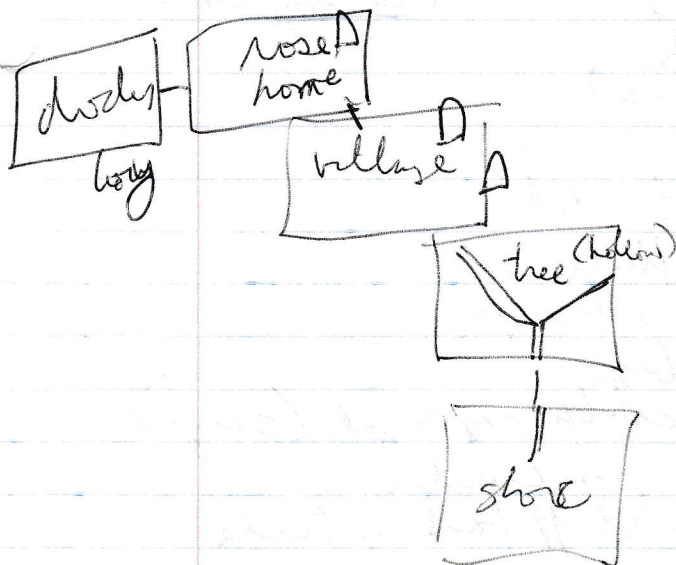 dody
body
nose
home
village
tree (hollow)
store